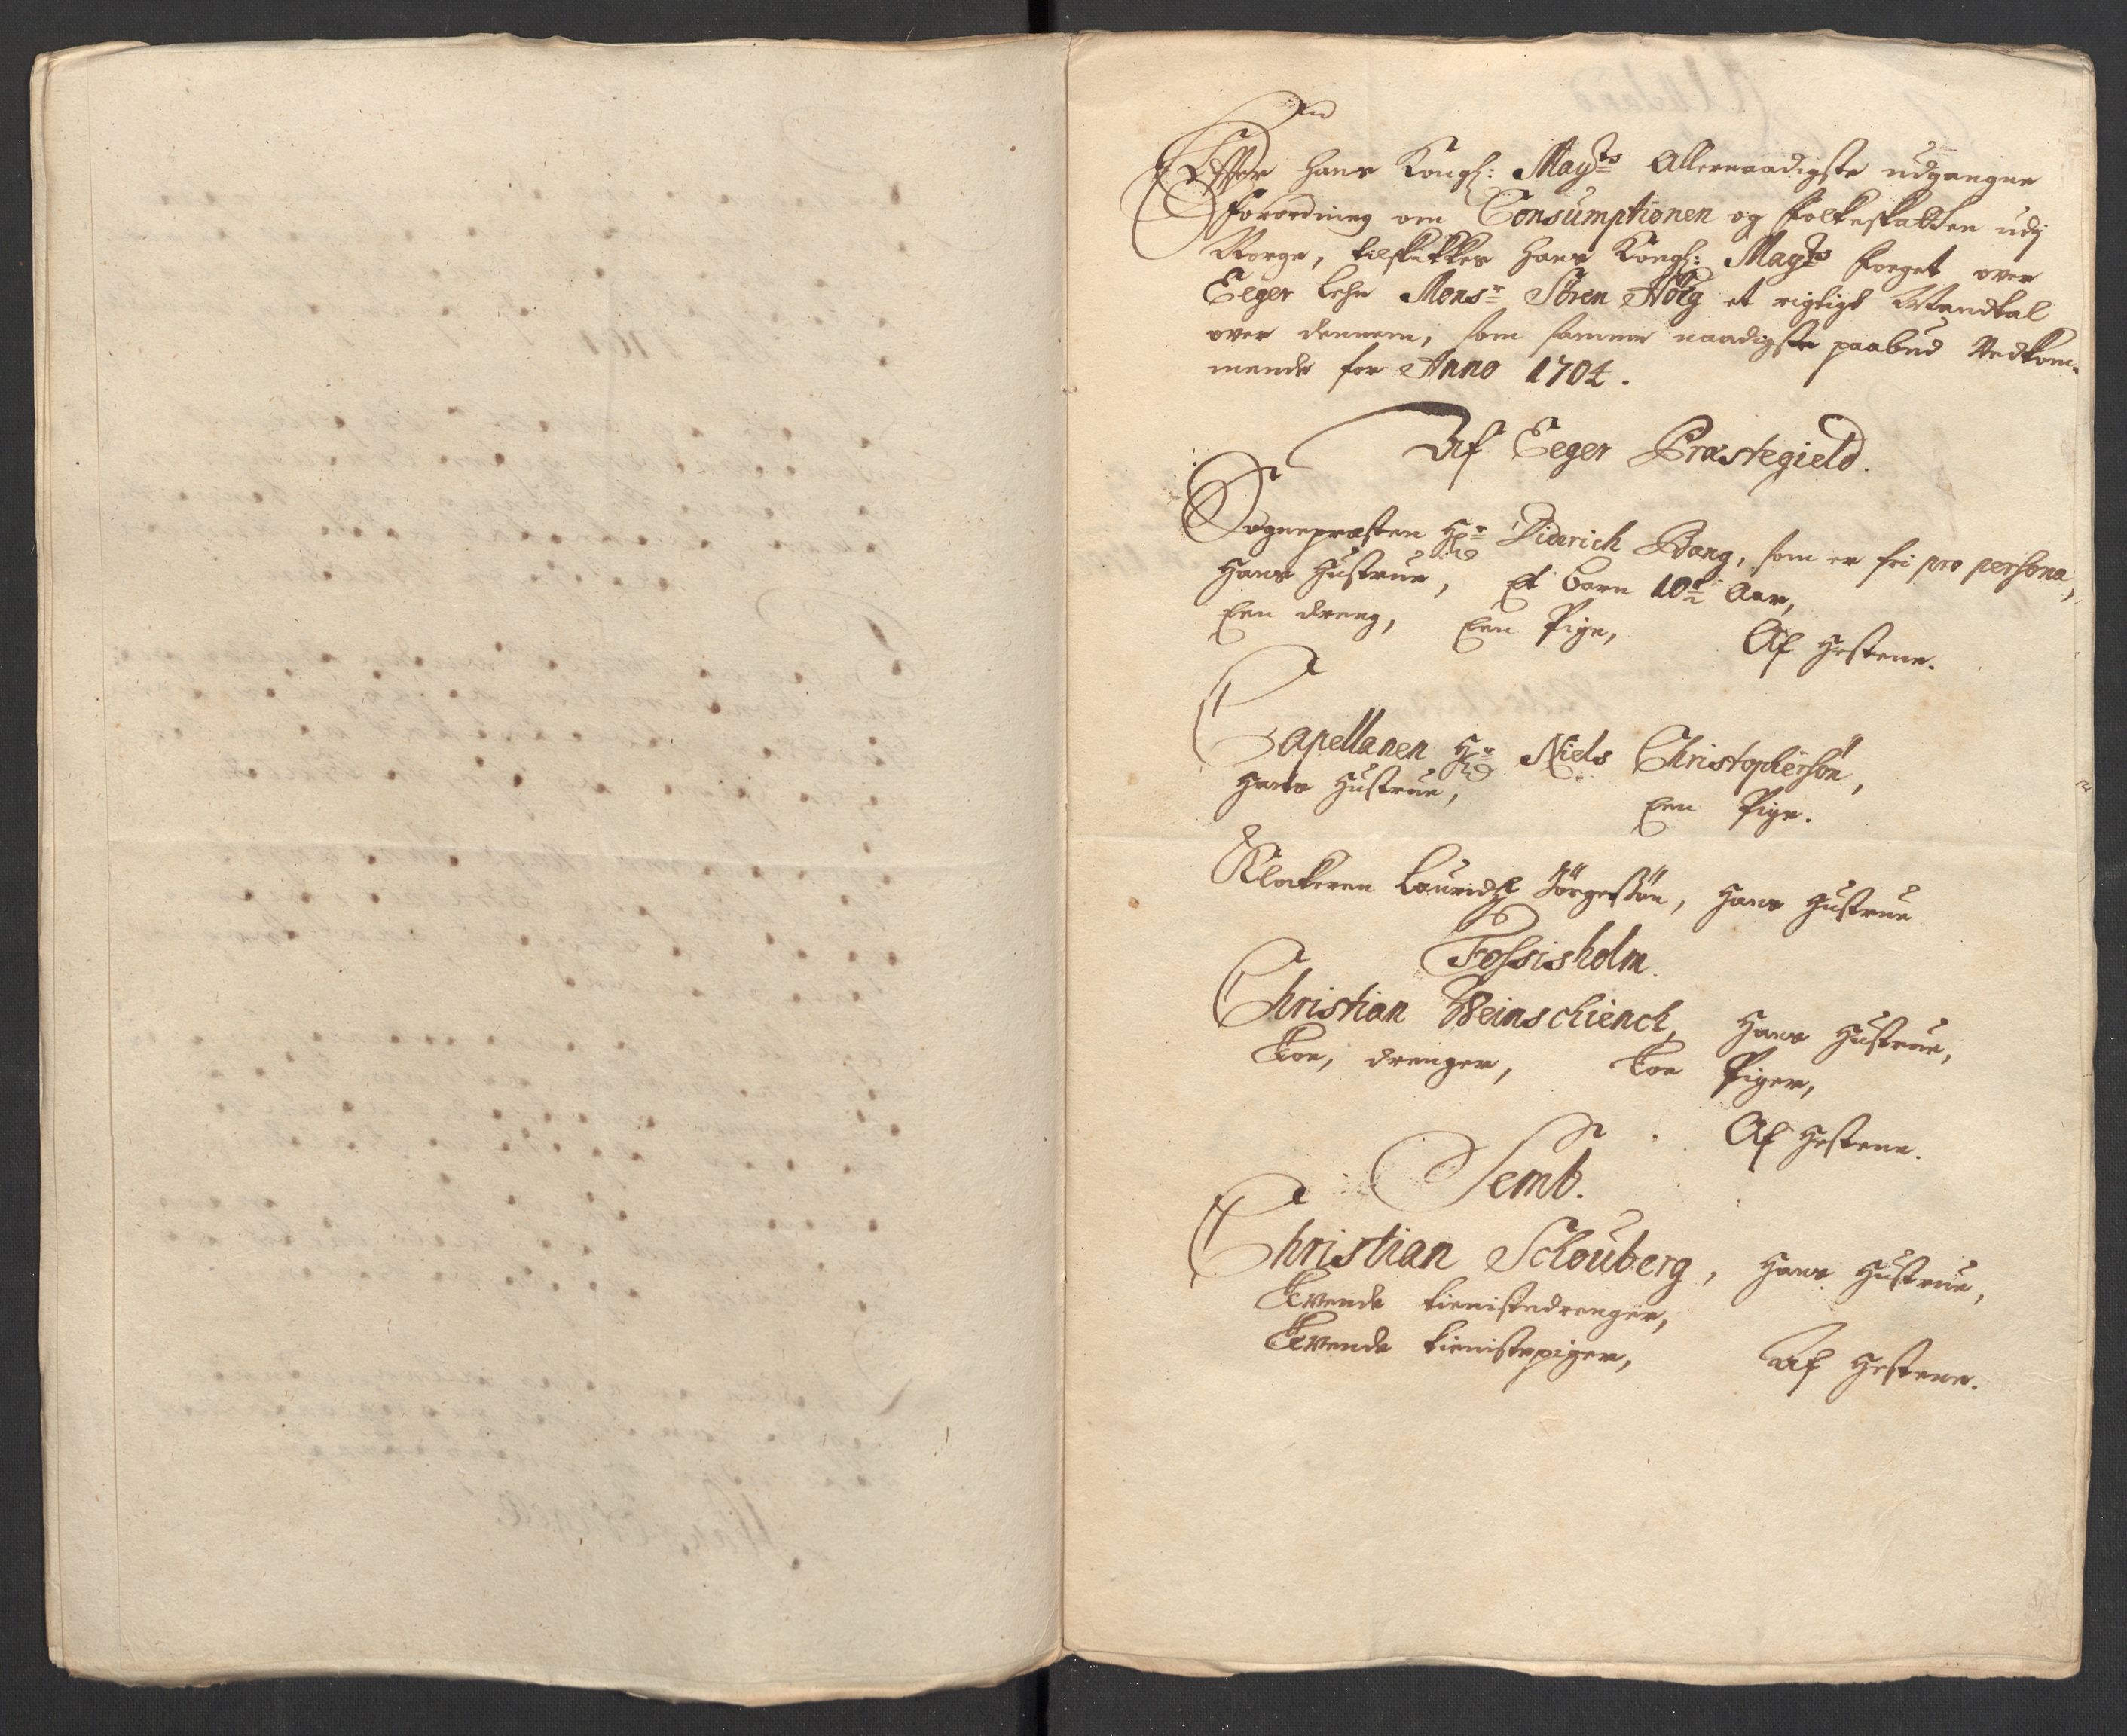 Effter Hans Kongl: Maÿts Allernaadigste udgangne
Forordning om Consumptionen og Folkeskatten udj
Norge, tilskikkes Hans Kongl: Mayts Foeget over
Eeger Lehn Monsr Sören Höÿg et rigtigt Mandtal
over dennem, som samme naadigste paabud Vedkom-
mende for Anno 1704.
Af Eeger Præstegield.
Sognepræsten Hr Diderich Bang, som er fri pro persona,
Hans Hustrue, Et Barn 10 Aar,
Een dreng, Een Pige, Af Hestene.
Capellanen Hr Niels Christophersön,
Hans Hustrue, Een Pige.
Klokeren Lauridtz Jörgensön, Hans Hustrue
Fossisholm.
Christian Weinschienck, Hans Hustrue,
Toe, drenger, Toe Piger,
Af Hestene.
Semb.
Christian Schouberg, Hans Hustrue,
Tvende tienistedrenger,
Tvende tienistepiger, Af Hestene.